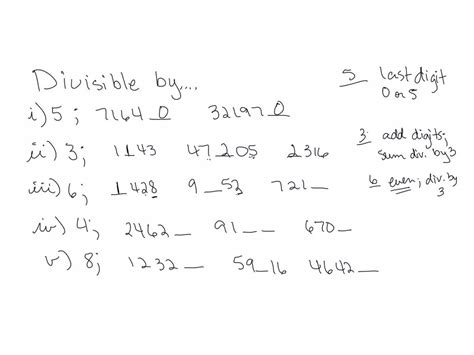 Divisible by....
i) 5; 7164 0 32197 0
ii) 3; 1143 47205 2316
iii) 6; 1428 9_53 721_
iv) 4; 2462_ 91_ _ 670_
v) 8; 1232_ 59_16 4642_
5 last digit
0 or 5
3: add digits;
sum div. by 3
6 even; div. by
3